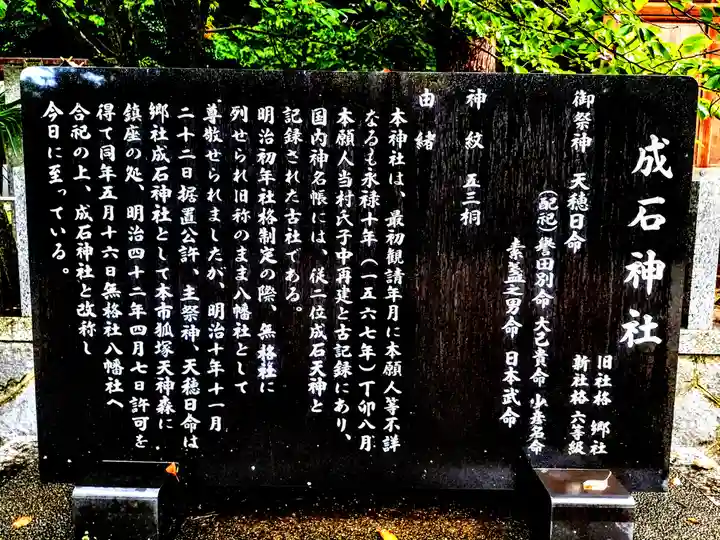 成石神社
旧社格 郷社
新社格 六等級
御祭神 天穂日命
(配祀)誉田別命 大己貴命 少彦名命
素盞之男命 日本武命
神紋 五三桐
由緒
本神社は、最初観請年月に本願人等不詳
なるも永禄十年(一五六七年)丁卯八月
本願人当村氏子中再建と古記録にあり、
国内神名帳には、従二位成石天神と
記録された古社である。
明治初年社格制定の際、無格社に
列せられ旧称のまま八幡社として
尊敬せられましたが、明治十年十一月
二十二日据置公許、主祭神、天穂日命は
郷社成石神社として本市狐塚天神森に
鎮座の処、明治四十二年四月七日許可を
得て同年五月十六日無格社八幡社へ
合祀の上、成石神社と改称し
今日に至っている。